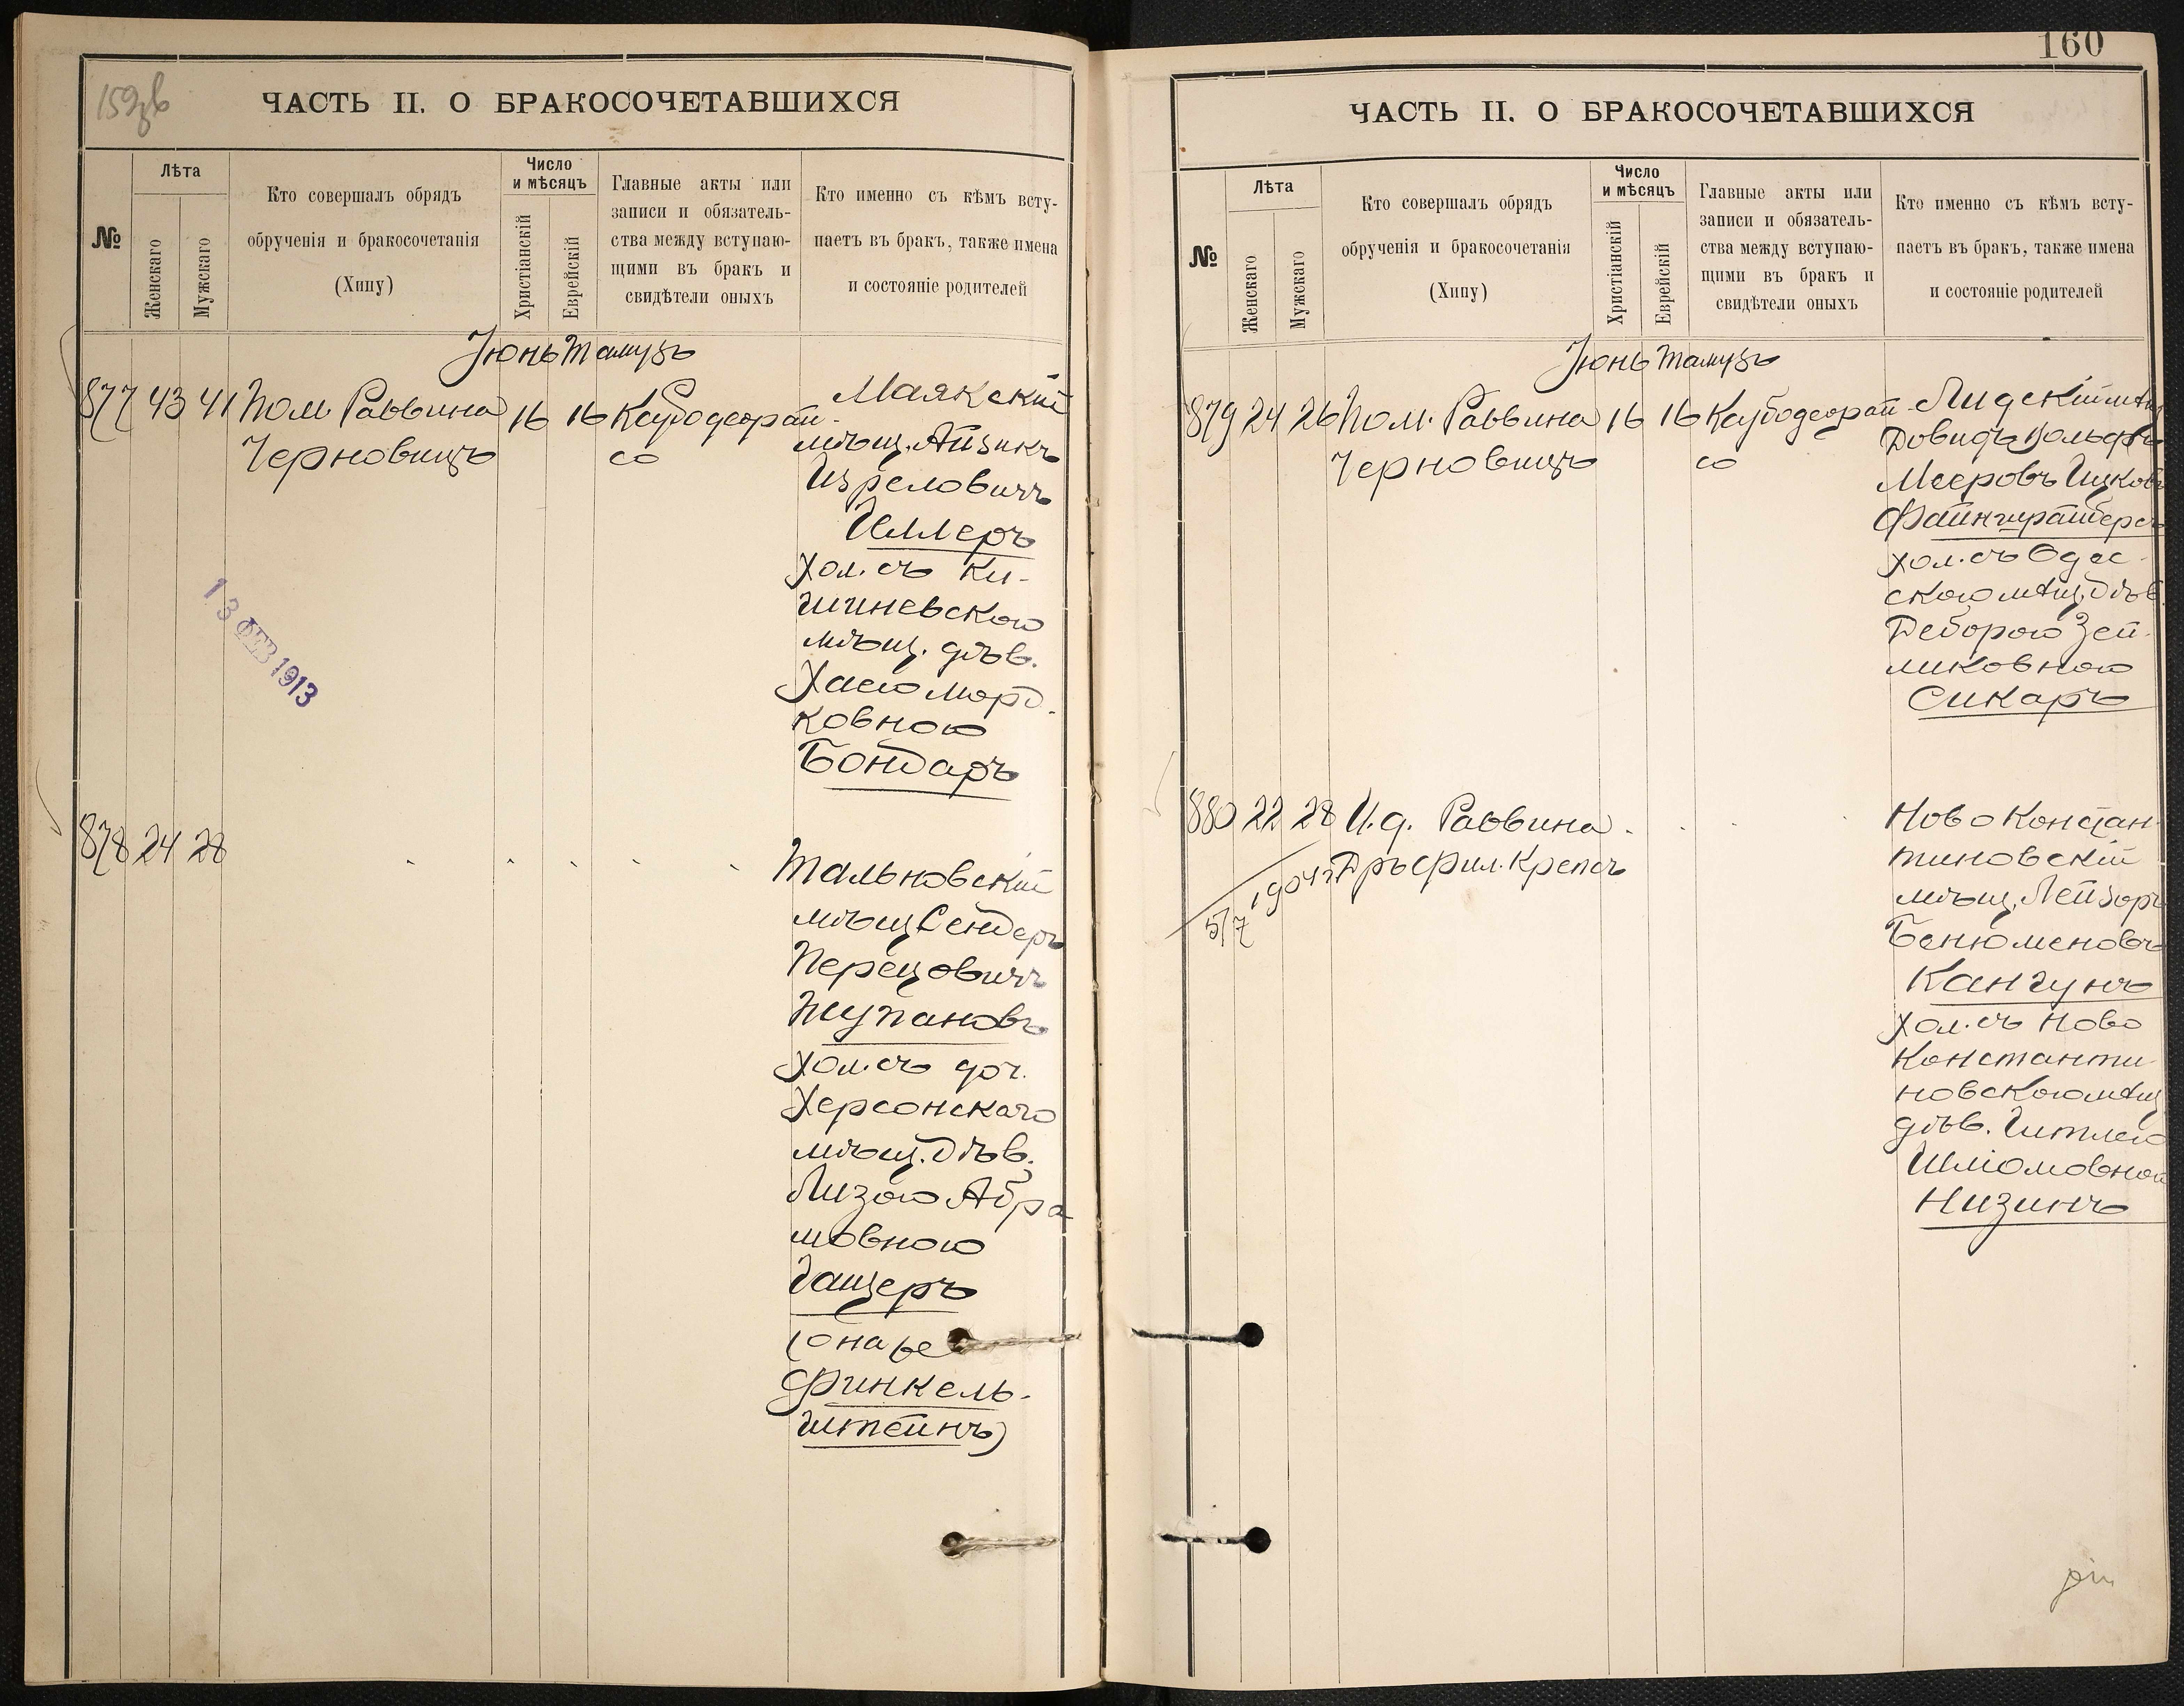 159об
ЧАСТЬ II. О БРАКОСОЧЕТАВШИХСЯ
№
Лѣта
Женскаго
Мужскаго
Кто совершалъ обрядъ
обрученія и бракосочетанія
(Хипу)
Число
и мѣсяцъ
Христіанскій
Еврейскій
Главные акты или
записи и обязатель-
ства между вступаю-
щими въ бракъ и
свидѣтели оныхъ
Кто именно съ кѣмъ всту-
паетъ въ бракъ, также имена
и состояніе родителей
Іюнь Тамузъ
877 43 41 Пом. Раввина 16 16
Черновицъ
Маякскій
мѣщ. Айзикъ
Изреловичъ
Иллеръ
хол. съ Ки-
шиневскою
мѣщ. дѣв.
Хаею Морд-
ковною
Бондаръ
13 ФЕВ 1913
878 24 28
Тальновскій
мѣщ Сендеръ
Перецовичъ
Жупановъ
хол. съ доч.
Херсонскаго
мѣщ. дѣв.
Лизою Абра
мовною
Гащеръ
(она же
Финкель-
штейнъ)
160
ЧАСТЬ II. О БРАКОСОЧЕТАВШИХСЯ
№
Лѣта
Женскаго
Мужскаго
Кто совершалъ обрядъ
обрученія и бракосочетанія
(Хипу)
Число
и мѣсяцъ
Христіанскій
Еврейскій
Главные акты или
записи и обязатель-
ства между вступаю-
щими въ бракъ и
свидѣтели оныхъ
Кто именно съ кѣмъ всту-
паетъ въ бракъ, также имена
и состояніе родителей
Іюнь Тамузъ
879 24 26 Пом. Раввина 16 16
Черновицъ
Лидскій мѣщ
Довидъ Вольфъ
Мееровъ Ицковъ
хол. съ Одес-
скою мѣщ. дѣв.
Деборою Зей-
ликовною
Сикаръ
880 22 28 И. д. Раввина
Д-ръ фил. Крепсъ
5/7 1904 г
Ново Констан-
тиновскій
мѣщ. Лейзоръ
Бенюменовъ
Кангунъ
хол. съ Ново
Константи
новскою мѣщ
дѣв. Гитлею
Шліомовной
Низинъ